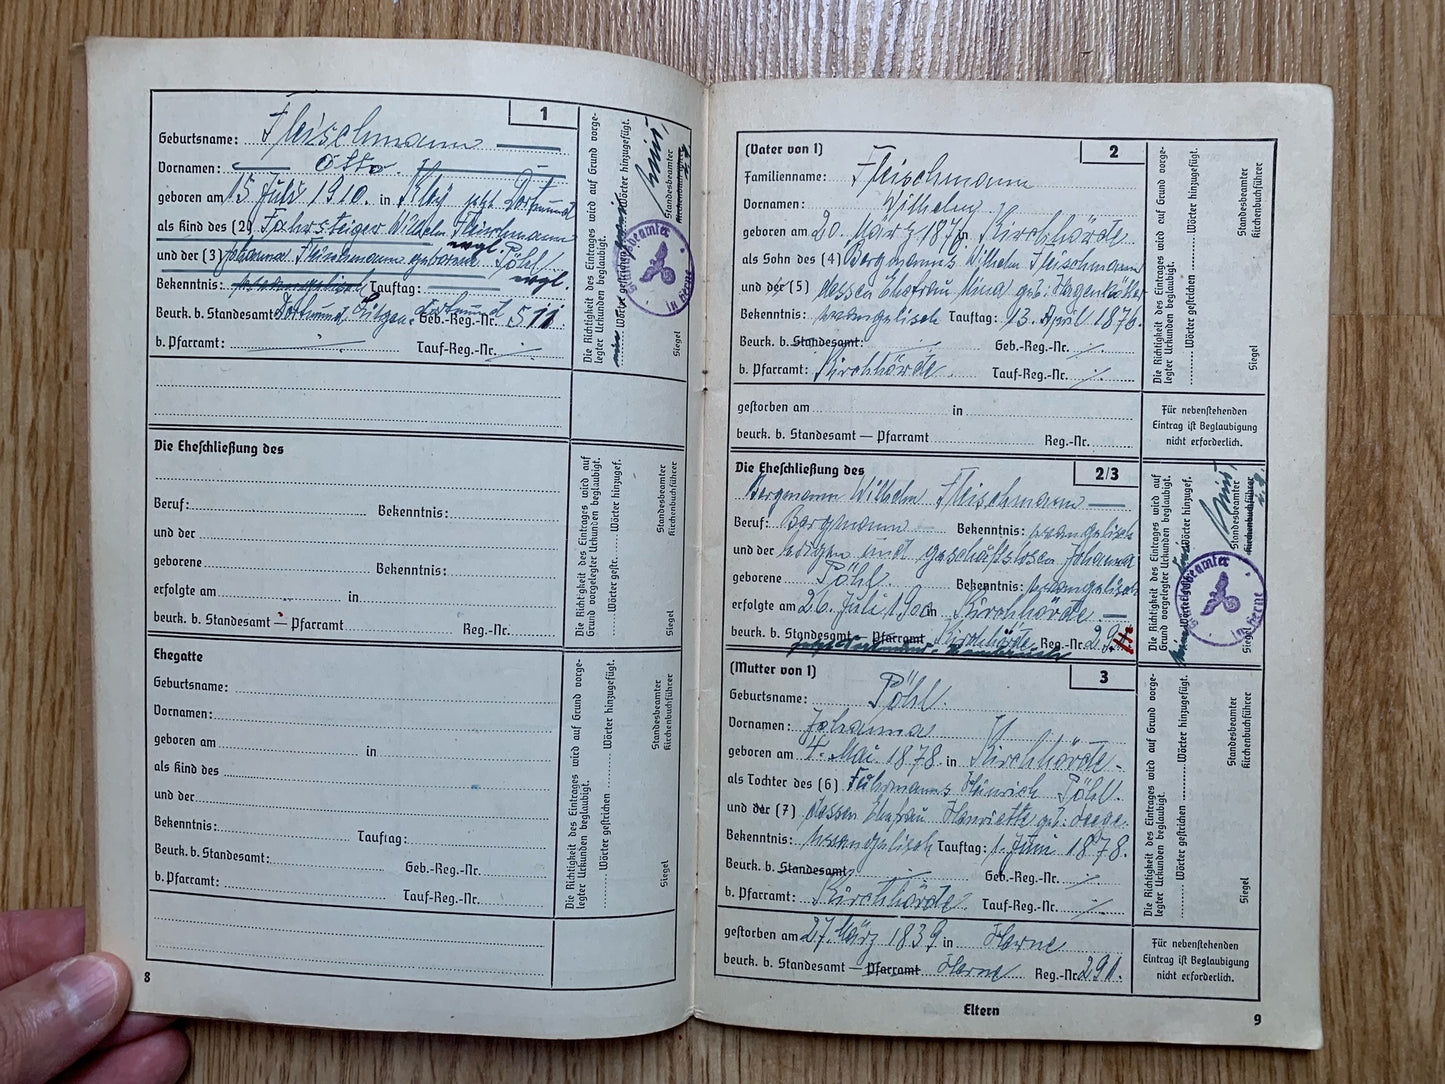 1
Geburtsname: Fleischmann
Vornamen: Otto
geboren am 15 Juli 1910. in Dortmund
als Kind des (2) Fahrsteiger Wilhelm Fleischmann
und der (3) Johanna Fleischmann geborene Pöhl
Bekenntnis: Tauftag:
Beurk. b. Standesamt Dortmund Geb.-Reg.-Nr. 511
b. Pfarramt: Tauf-Reg.-Nr.
Die Richtigkeit des Eintrages wird auf Grund vorge-
legter Urkunden beglaubigt.
Wörter gestrichen Wörter hinzugefügt.
Standesbeamter
Kirchenbuchführer
Siegel
Die Eheschließung des
Beruf: Bekenntnis:
und der
geborene Bekenntnis:
erfolgte am in
beurk. b. Standesamt — Pfarramt Reg.-Nr.
Die Richtigkeit des Eintrages wird auf
Grund vorgelegter Urkunden beglaubigt.
Wörter gestr. Wörter hinzugef.
Standesbeamter
Kirchenbuchführer
Siegel
Ehegatte
Geburtsname:
Vornamen:
geboren am in
als Kind des
und der
Bekenntnis: Tauftag:
Beurk. b. Standesamt: Geb.-Reg.-Nr.
b. Pfarramt: Tauf-Reg.-Nr.
Die Richtigkeit des Eintrages wird auf Grund vorge-
legter Urkunden beglaubigt.
Wörter gestrichen Wörter hinzugefügt.
Standesbeamter
Kirchenbuchführer
Siegel
8
(Vater von 1) 2
Familienname: Fleischmann
Vornamen: Wilhelm
geboren am 20. März 1876 in Kirchhörde
als Sohn des (4) Bergmanns Wilhelm Fleischmann
und der (5) dessen Ehefrau Mina geb:
Bekenntnis: evangelisch Tauftag: 13. April 1876.
Beurk. b. Standesamt: Geb.-Reg.-Nr.
b. Pfarramt: Kirchhörde Tauf-Reg.-Nr.
Die Richtigkeit des Eintrages wird auf Grund vorge-
legter Urkunden beglaubigt.
Wörter gestrichen Wörter hinzugefügt.
Standesbeamter
Kirchenbuchführer
Siegel
gestorben am in
beurk. b. Standesamt — Pfarramt Reg.-Nr.
Für nebenstehenden
Eintrag ist Beglaubigung
nicht erforderlich.
Die Eheschließung des 2/3
Bergmann Wilhelm Fleischmann
Beruf: Bergmann Bekenntnis: evangelisch
und der ledigen und geschäftslosen Johanna
geborene Pöhl Bekenntnis: evangelisch
erfolgte am 26. Juli 1900 in Kirchhörde
beurk. b. Standesamt — Pfarramt Kirchhörde Reg.-Nr.
Die Richtigkeit des Eintrages wird auf
Grund vorgelegter Urkunden beglaubigt.
Standesbeamter
Kirchenbuchführer
Siegel
(Mutter von 1) 3
Geburtsname: Pöhl.
Vornamen: Johanna
geboren am 4. Mai 1878. in Kirchhörde
als Tochter des (6) Fuhrmanns Heinrich Pöhl.
und der (7) dessen Ehefrau Henriette geb:
Bekenntnis: evangelisch Tauftag: 1. Juni 1878.
Beurk. b. Standesamt Geb.-Reg.-Nr.
b. Pfarramt: Kirchhörde Tauf-Reg.-Nr.
Die Richtigkeit des Eintrages wird auf Grund vorge-
legter Urkunden beglaubigt.
Wörter gestrichen Wörter hinzugefügt.
Standesbeamter
Kirchenbuchführer
Siegel
gestorben am 27. März 1939 in Herne
beurk. b. Standesamt — Pfarramt Herne Reg.-Nr. 291.
Für nebenstehenden
Eintrag ist Beglaubigung
nicht erforderlich.
Eltern
9